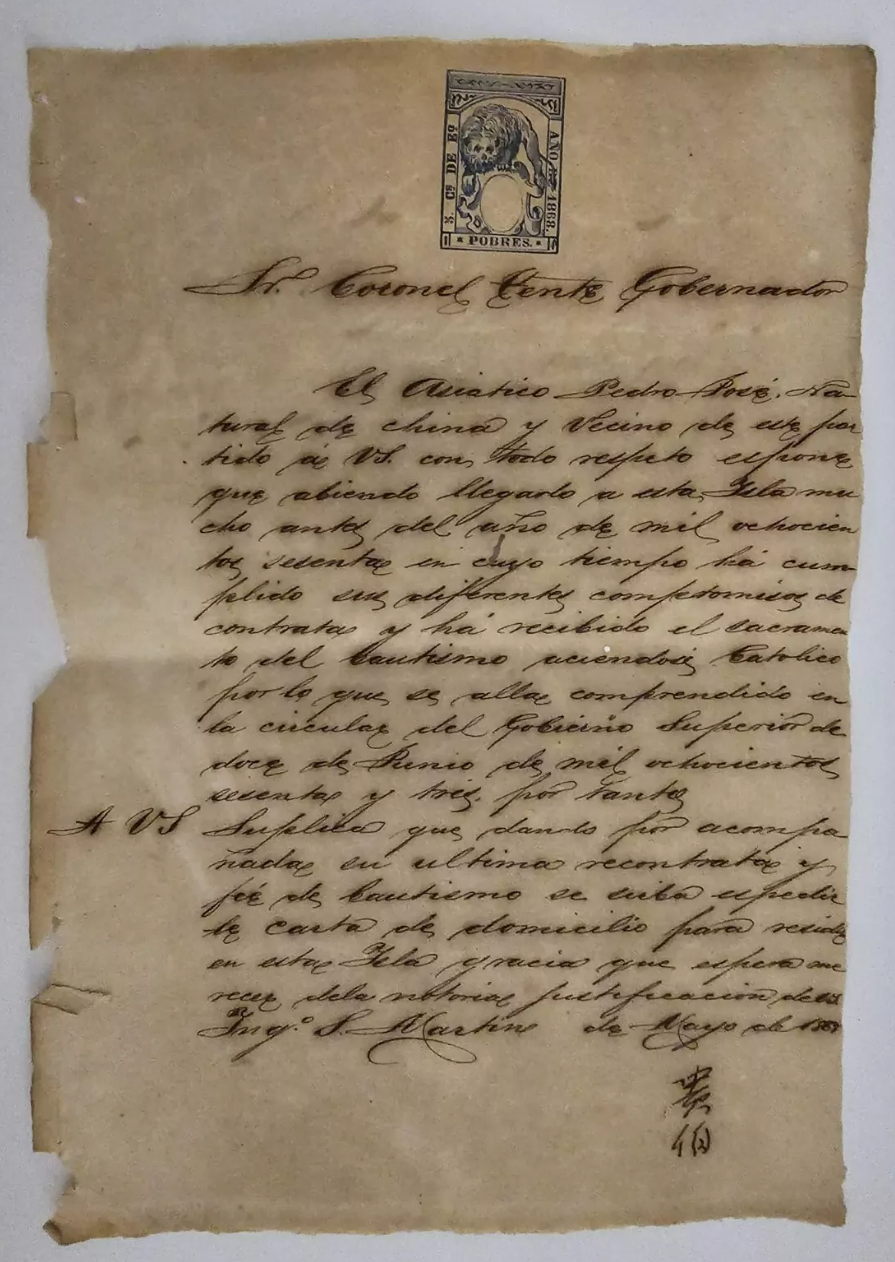 5. Cs DE Eo
AÑO DE 1868.
POBRES.
Sr. Coronel Tente Gobernador
El Asiatico Pedro José, Na-
tural de china y Vecino de este par
tido á VS. con todo respeto espone
que abiendo llegado a esta Isla mu
cho antes del año de mil ochocien
tos sesenta en cuyo tiempo há cum-
plido sus diferentes compromisos de
contrata y há recibido el sacramen
to del bautismo aciendose Catolico
por lo que se alla comprendido en
la circular del Gobierno Superior de
doce de Junio de mil ochocientos
sesenta y tres. por tanto
A VS Suplica que dando por acompa
ñada su ultima recontrata y
fé de bautismo se sirba espedir
le carta de domicilio para residir
en esta Isla gracia que espera me
recer dela notoria justificacion de VS.
Ingo. S. Martin de Mayo de
伯